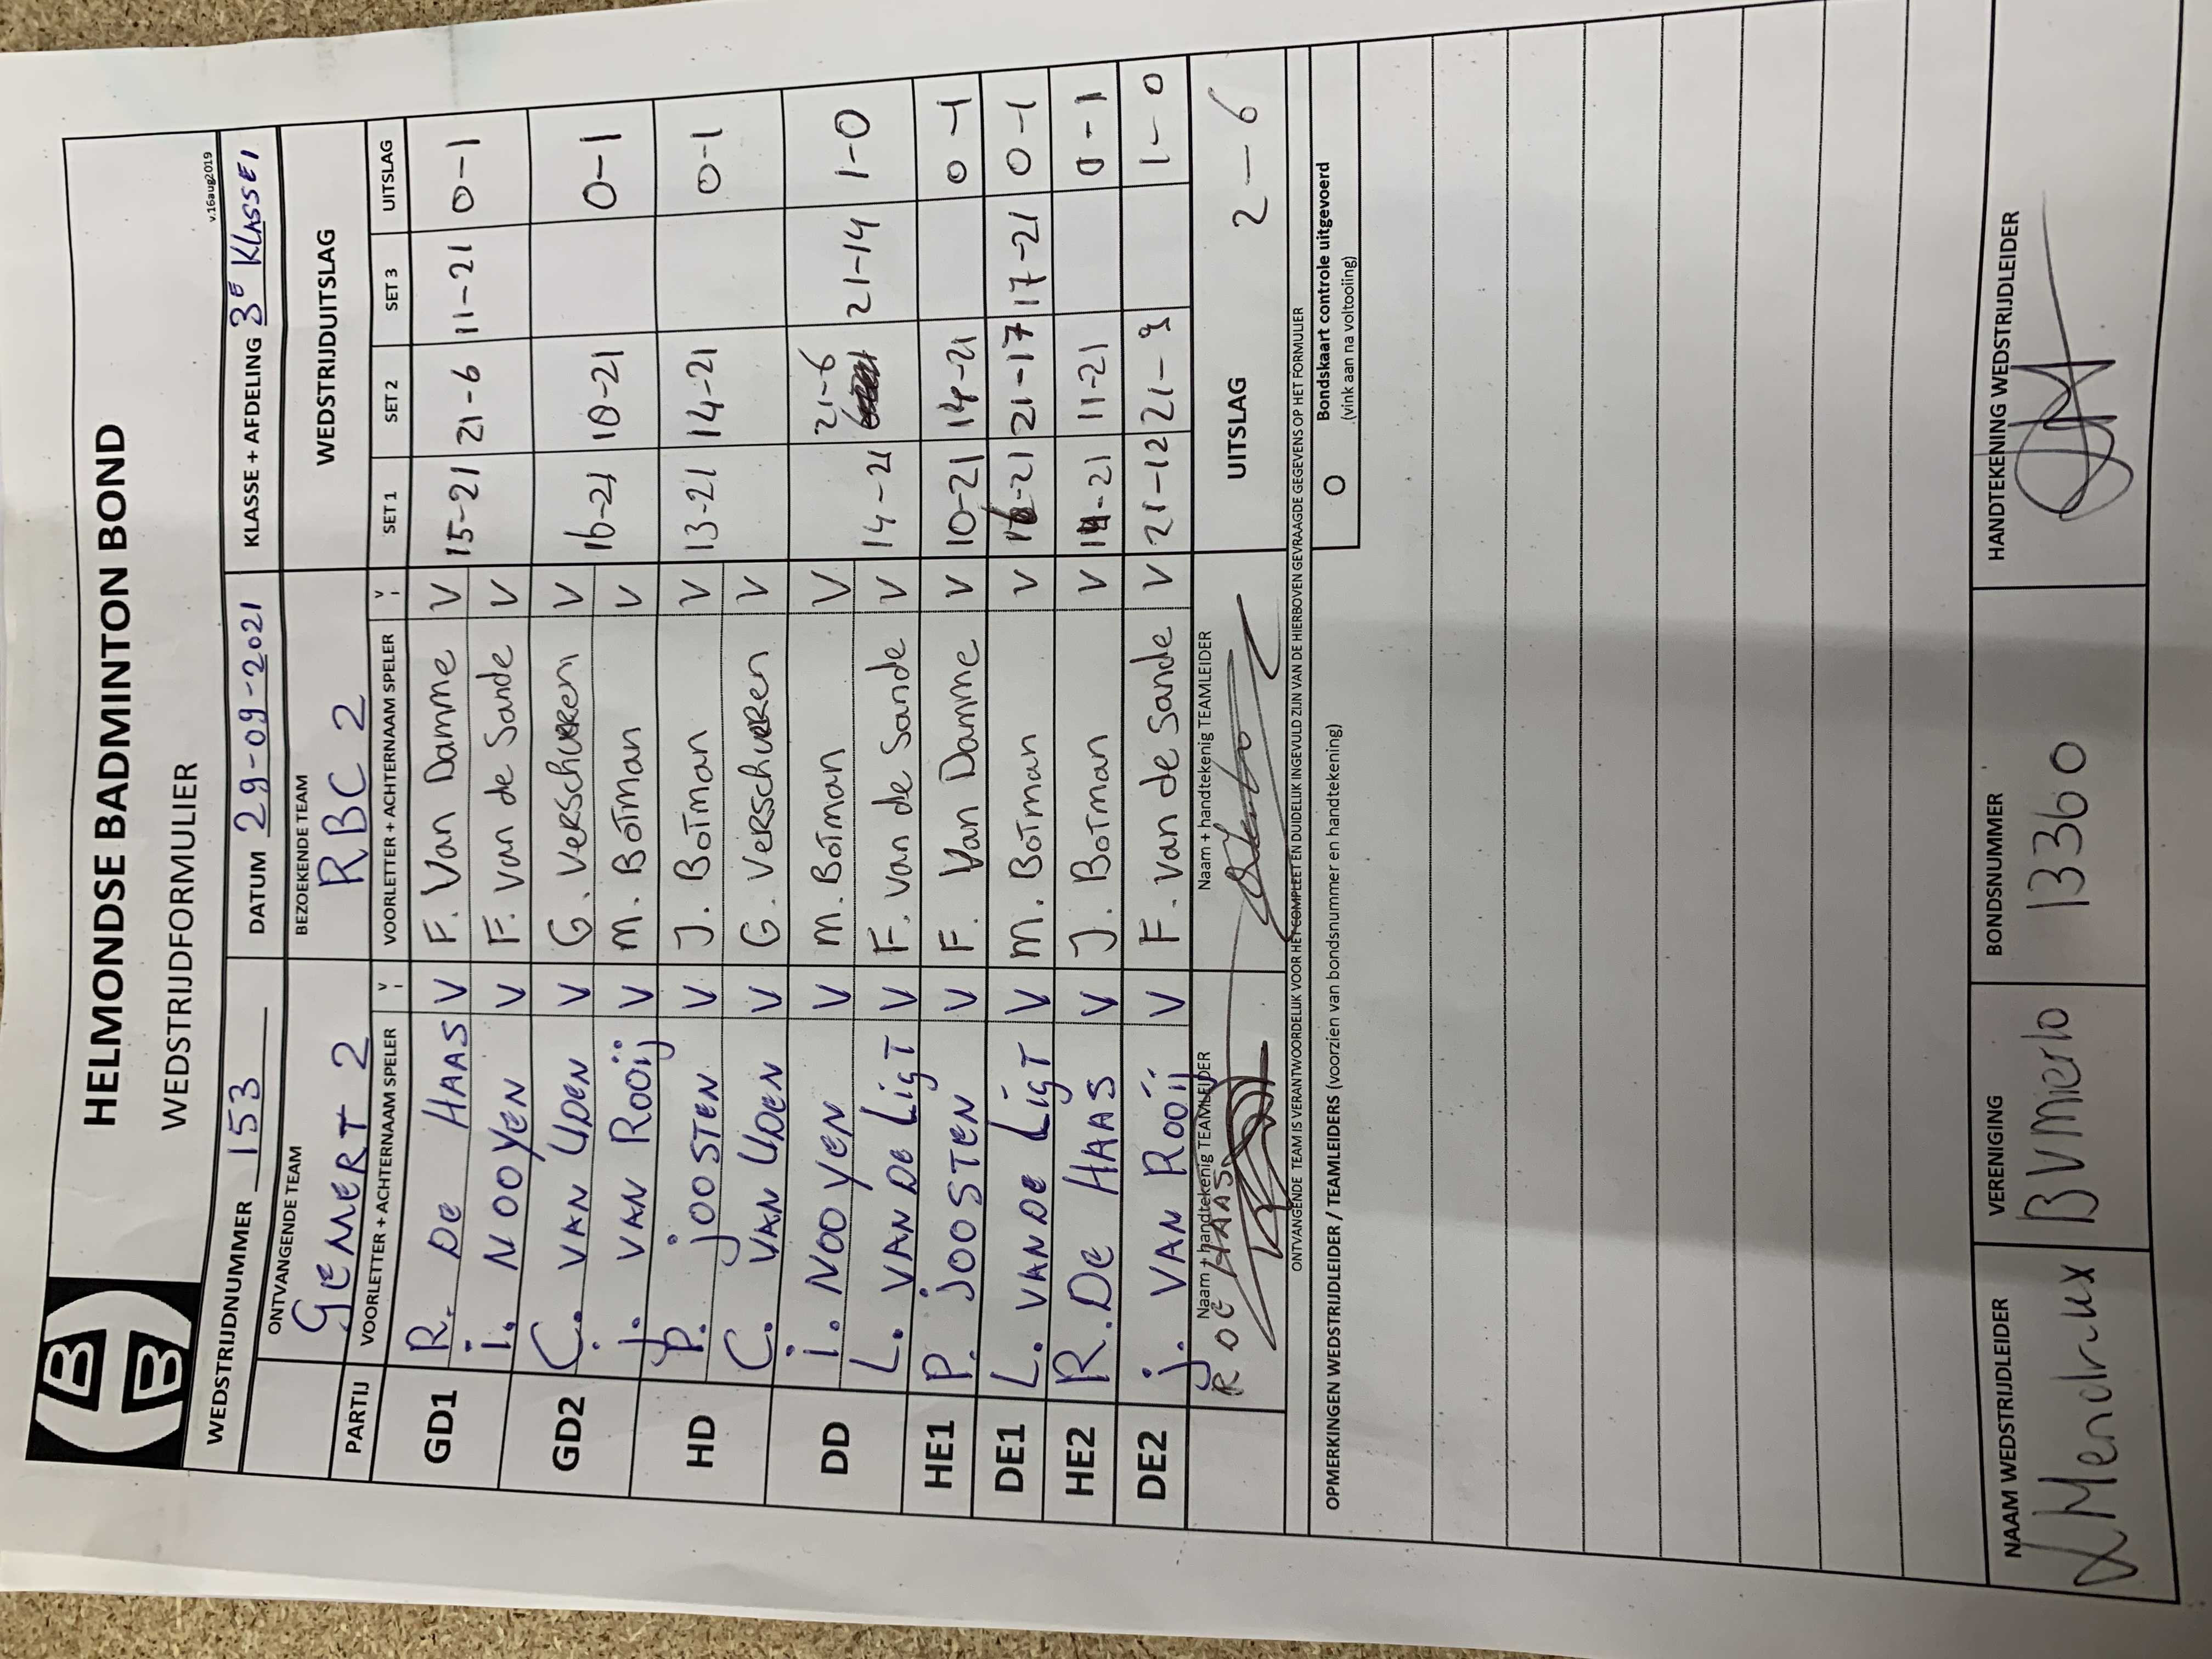 HELMONDSE BADMINTON BOND
WEDSTRIJDFORMULIER
v.16aug2019
WEDSTRIJDNUMMER 153 DATUM 29-09-2021 KLASSE + AFDELING 3E KLASSE 1
ONTVANGENDE TEAM BEZOEKENDE TEAM WEDSTRIJDUITSLAG
GEMERT 2 RBC 2
PARTIJ VOORLETTER + ACHTERNAAM SPELER V VOORLETTER + ACHTERNAAM SPELER V SET 1 SET 2 SET 3 UITSLAG
GD1 R. DE HAAS V F. Van Damme V 15-21 21-6 11-21 0-1
i. NOOYEN V F. van de Sande V
GD2 C. VAN UDEN V G. Verschueren V 16-21 10-21 0-1
j. VAN ROOIJ V M. Botman V
HD P. jOOSTEN V J. Botman V 13-21 14-21 0-1
C. VAN UDEN V G. Verschueren V
DD i. NOOYEN V M. Botman V 21-6
L. VAN DE LIGT V F. van de Sande V 14-21 21-14 1-0
HE1 P. JOOSTEN V F. Van Damme V 10-21 14-21 0-1
DE1 L. VAN DE LIGT V M. Botman V 16-21 21-17 17-21 0-1
HE2 R. DE HAAS V J. Botman V 14-21 11-21 0-1
DE2 j. VAN ROOIJ V F. van de Sande V 21-12 21-9 1-0
Naam + handtekenig TEAMLEIDER Naam + handtekenig TEAMLEIDER UITSLAG 2-6
R DE HAAS
ONTVANGENDE TEAM IS VERANTWOORDELIJK VOOR HET COMPLEET EN DUIDELIJK INGEVULD ZIJN VAN DE HIERBOVEN GEVRAAGDE GEGEVENS OP HET FORMULIER
OPMERKINGEN WEDSTRIJDLEIDER / TEAMLEIDERS (voorzien van bondsnummer en handtekening) O Bondskaart controle uitgevoerd
(vink aan na voltooling)
NAAM WEDSTRIJDLEIDER VERENIGING BONDSNUMMER HANDTEKENING WEDSTRIJDLEIDER
BVMierlo 13360